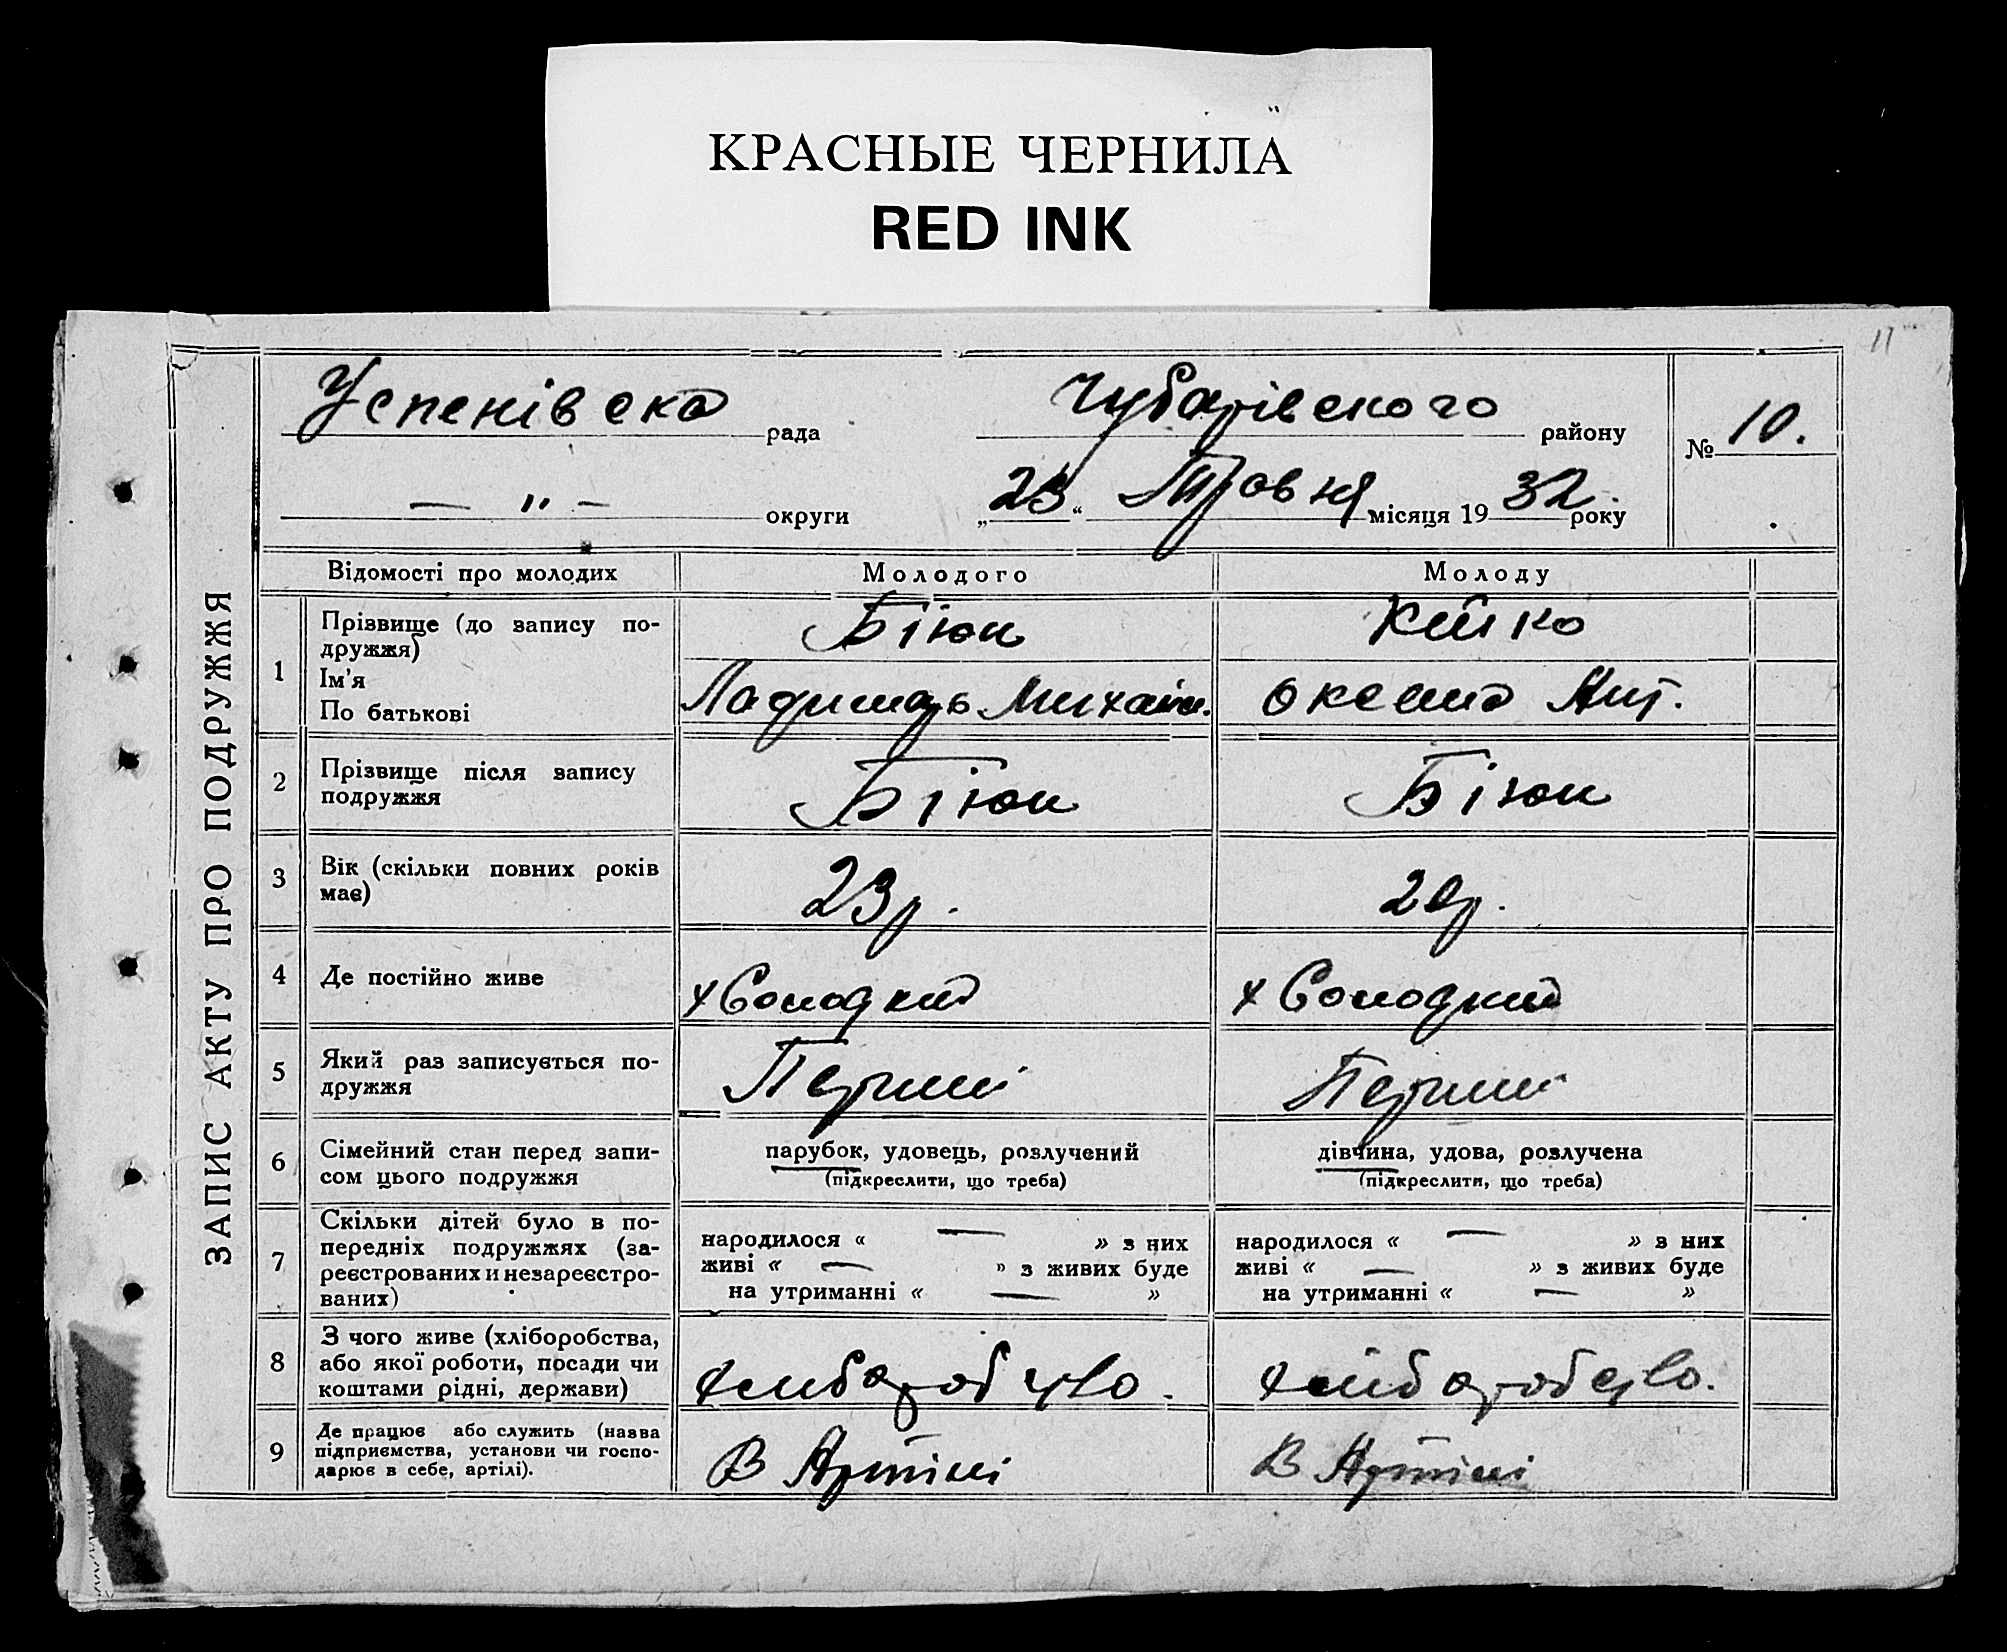 КРАСНЫЕ ЧЕРНИЛА
RED INK
11
ЗАПИС АКТУ ПРО ПОДРУЖЖЯ
Успенівска рада Чубарівского району № 10.
— " — округи „23“ Травня місяця 1932. року
Відомості про молодих Молодого Молоду
1 Прізвище (до запису по-
дружжя) Бізюк Кейко
Ім'я
По батькові Михайл. Оксана Ант.
2 Прізвище після запису
подружжя Бізюк Бізюк
3 Вік (скільки повних років
має) 23 р. 20 р.
4 Де постійно живе х Солодкий х Солодкий
5 Який раз записується по-
дружжя Перший Перший
6 Сімейний стан перед запи-
сом цього подружжя
парубок, удовець, розлучений
(підкреслити, що треба)
дівчина, удова, розлучена
(підкреслити, що треба)
7 Скільки дітей було в по-
передніх подружжях (за-
реєстрованих и незареєстро-
ваних)
народилося « — » з них
живі « — » з живих буде
на утриманні « — »
народилося « — » з них
живі « — » з живих буде
на утриманні « — »
8 З чого живе (хліборобства,
або якої роботи, посади чи
коштами рідні, держави)
9 Де працює або служить (назва
підприємства, установи чи госпо-
дарює в себе, артілі).
В Артілі В Артілі